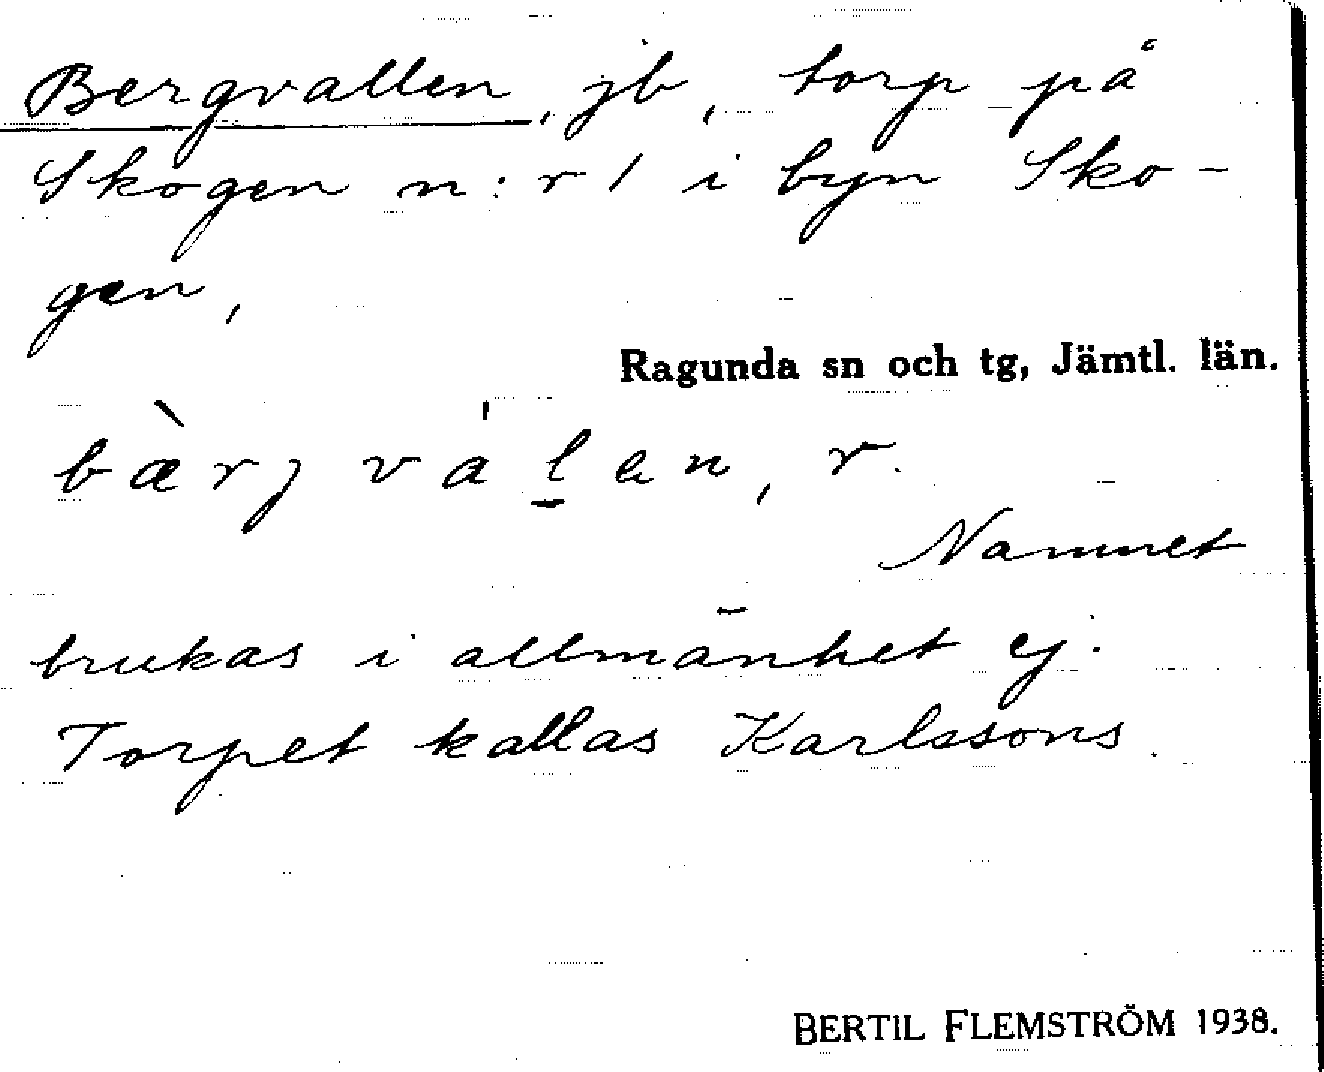 Bergvallen, jb, torp på
Skogen n:r 1 i byn Sko-
gen,
Ragunda sn och tg, Jämtl. län.
bæ̀rj válen, r.
Namnet
brukas i allmänhet ej.
Torpet kallas Karlssons.
BERTIL FLEMSTRÖM 1938.